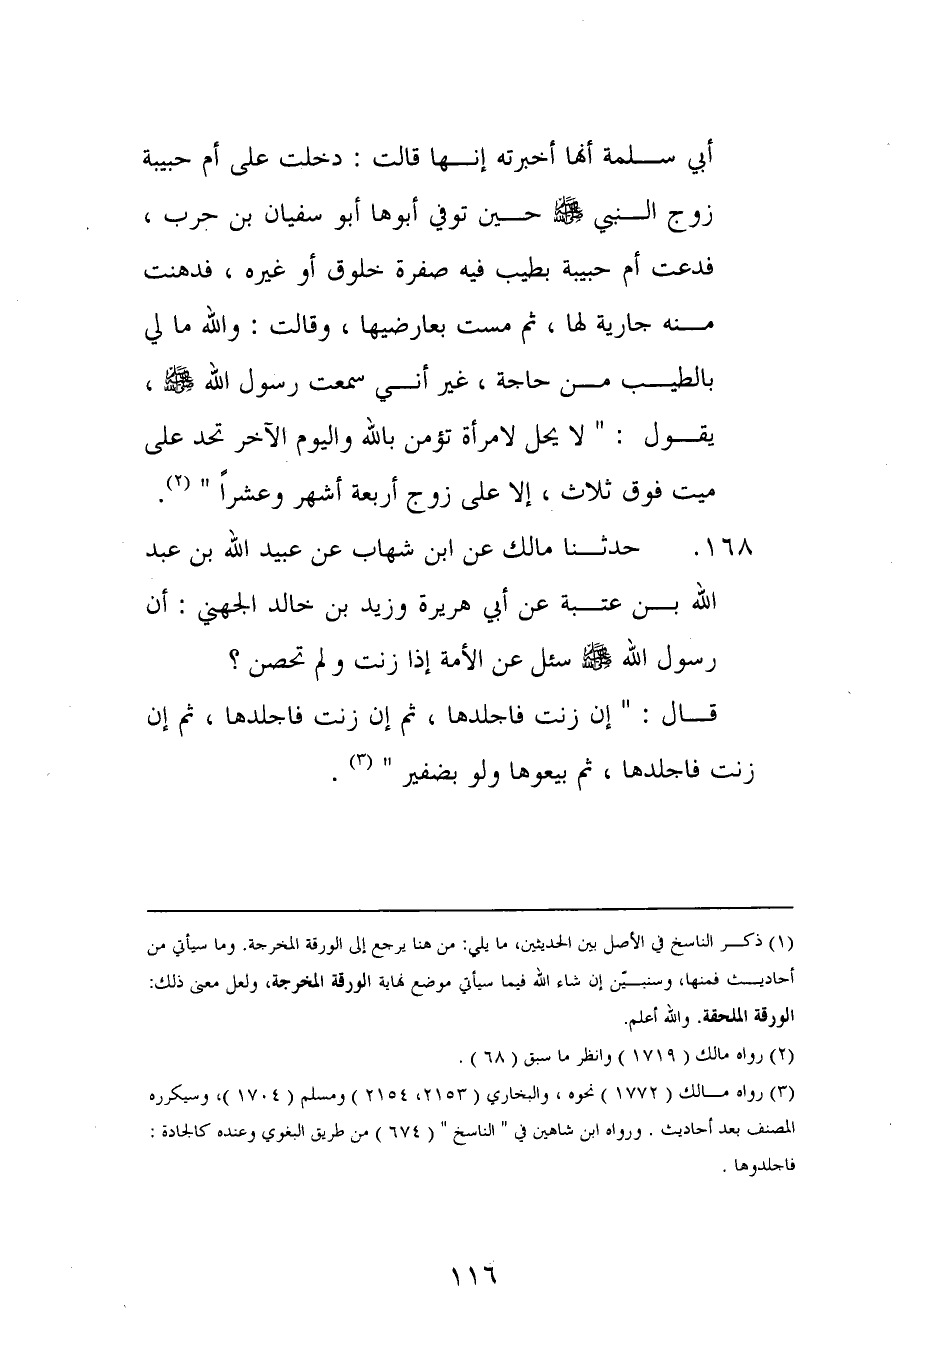 أبي سلمة أنها أخبرته إنها قالت : دخلت على أم حبيبة
زوج النبي ﷺ حين توفي أبوها أبو سفيان بن حرب ،
فدعت أم حبيبة بطيب فيه صفرة خلوق أو غيره ، فدهنت
منه جارية لها ، ثم مست بعارضيها ، وقالت : والله ما لي
بالطيب من حاجة ، غير أني سمعت رسول الله ﷺ ،
يقول : " لا يحل لامرأة تؤمن بالله واليوم الآخر تحد على
ميت فوق ثلاث ، إلا على زوج أربعة أشهر وعشراً " (٢).
١٦٨. حدثنا مالك عن ابن شهاب عن عبيد الله بن عبد
الله بن عتبة عن أبي هريرة وزيد بن خالد الجهني : أن
رسول الله ﷺ سئل عن الأمة إذا زنت ولم تحصن ؟
قال : " إن زنت فاجلدها ، ثم إن زنت فاجلدها ، ثم إن
زنت فاجلدها ، ثم بيعوها ولو بضفير " (٣) .
(١) ذكر الناسخ في الأصل بين الحديثين، ما يلي: من هنا يرجع إلى الورقة المخرجة. وما سيأتي من
أحاديث فمنها، وسنبيّن إن شاء الله فيما سيأتي موضع نهاية الورقة المخرجة، ولعل معنى ذلك:
الورقة الملحقة. والله أعلم.
(٢) رواه مالك ( ١٧١٩ ) وانظر ما سبق ( ٦٨ ) .
(٣) رواه مالك ( ١٧٧٢ ) نحوه ، والبخاري ( ٢١٥٣، ٢١٥٤ ) ومسلم ( ١٧٠٤ )، وسيكرره
المصنف بعد أحاديث . ورواه ابن شاهين في " الناسخ " ( ٦٧٤ ) من طريق البغوي وعنده كالجادة :
فاجلدوها .
١١٦